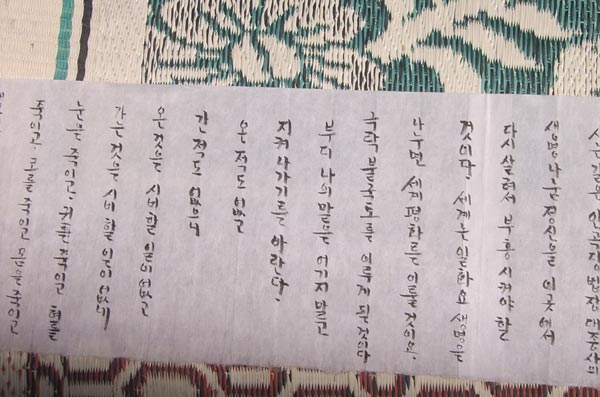 법장 대종사의
생명나눔 정신을 이곳에서
다시 살려서 부흥시켜야 할
것이다. 세계는 일화요 생명을
나누면 세계평화를 이룰것이오.
극락불국토를 이루게 될것이다
부디 나의 말을 어기지 말고
지켜 나가기를 바란다.
온 적도 없고
간 적도 없으니
온 것을 시비할 일이 없고
간 것을 시비할 일이 없네
눈을 죽이고, 귀를 죽이고 혀를
죽이고, 코를 죽이고 몸을 죽이고